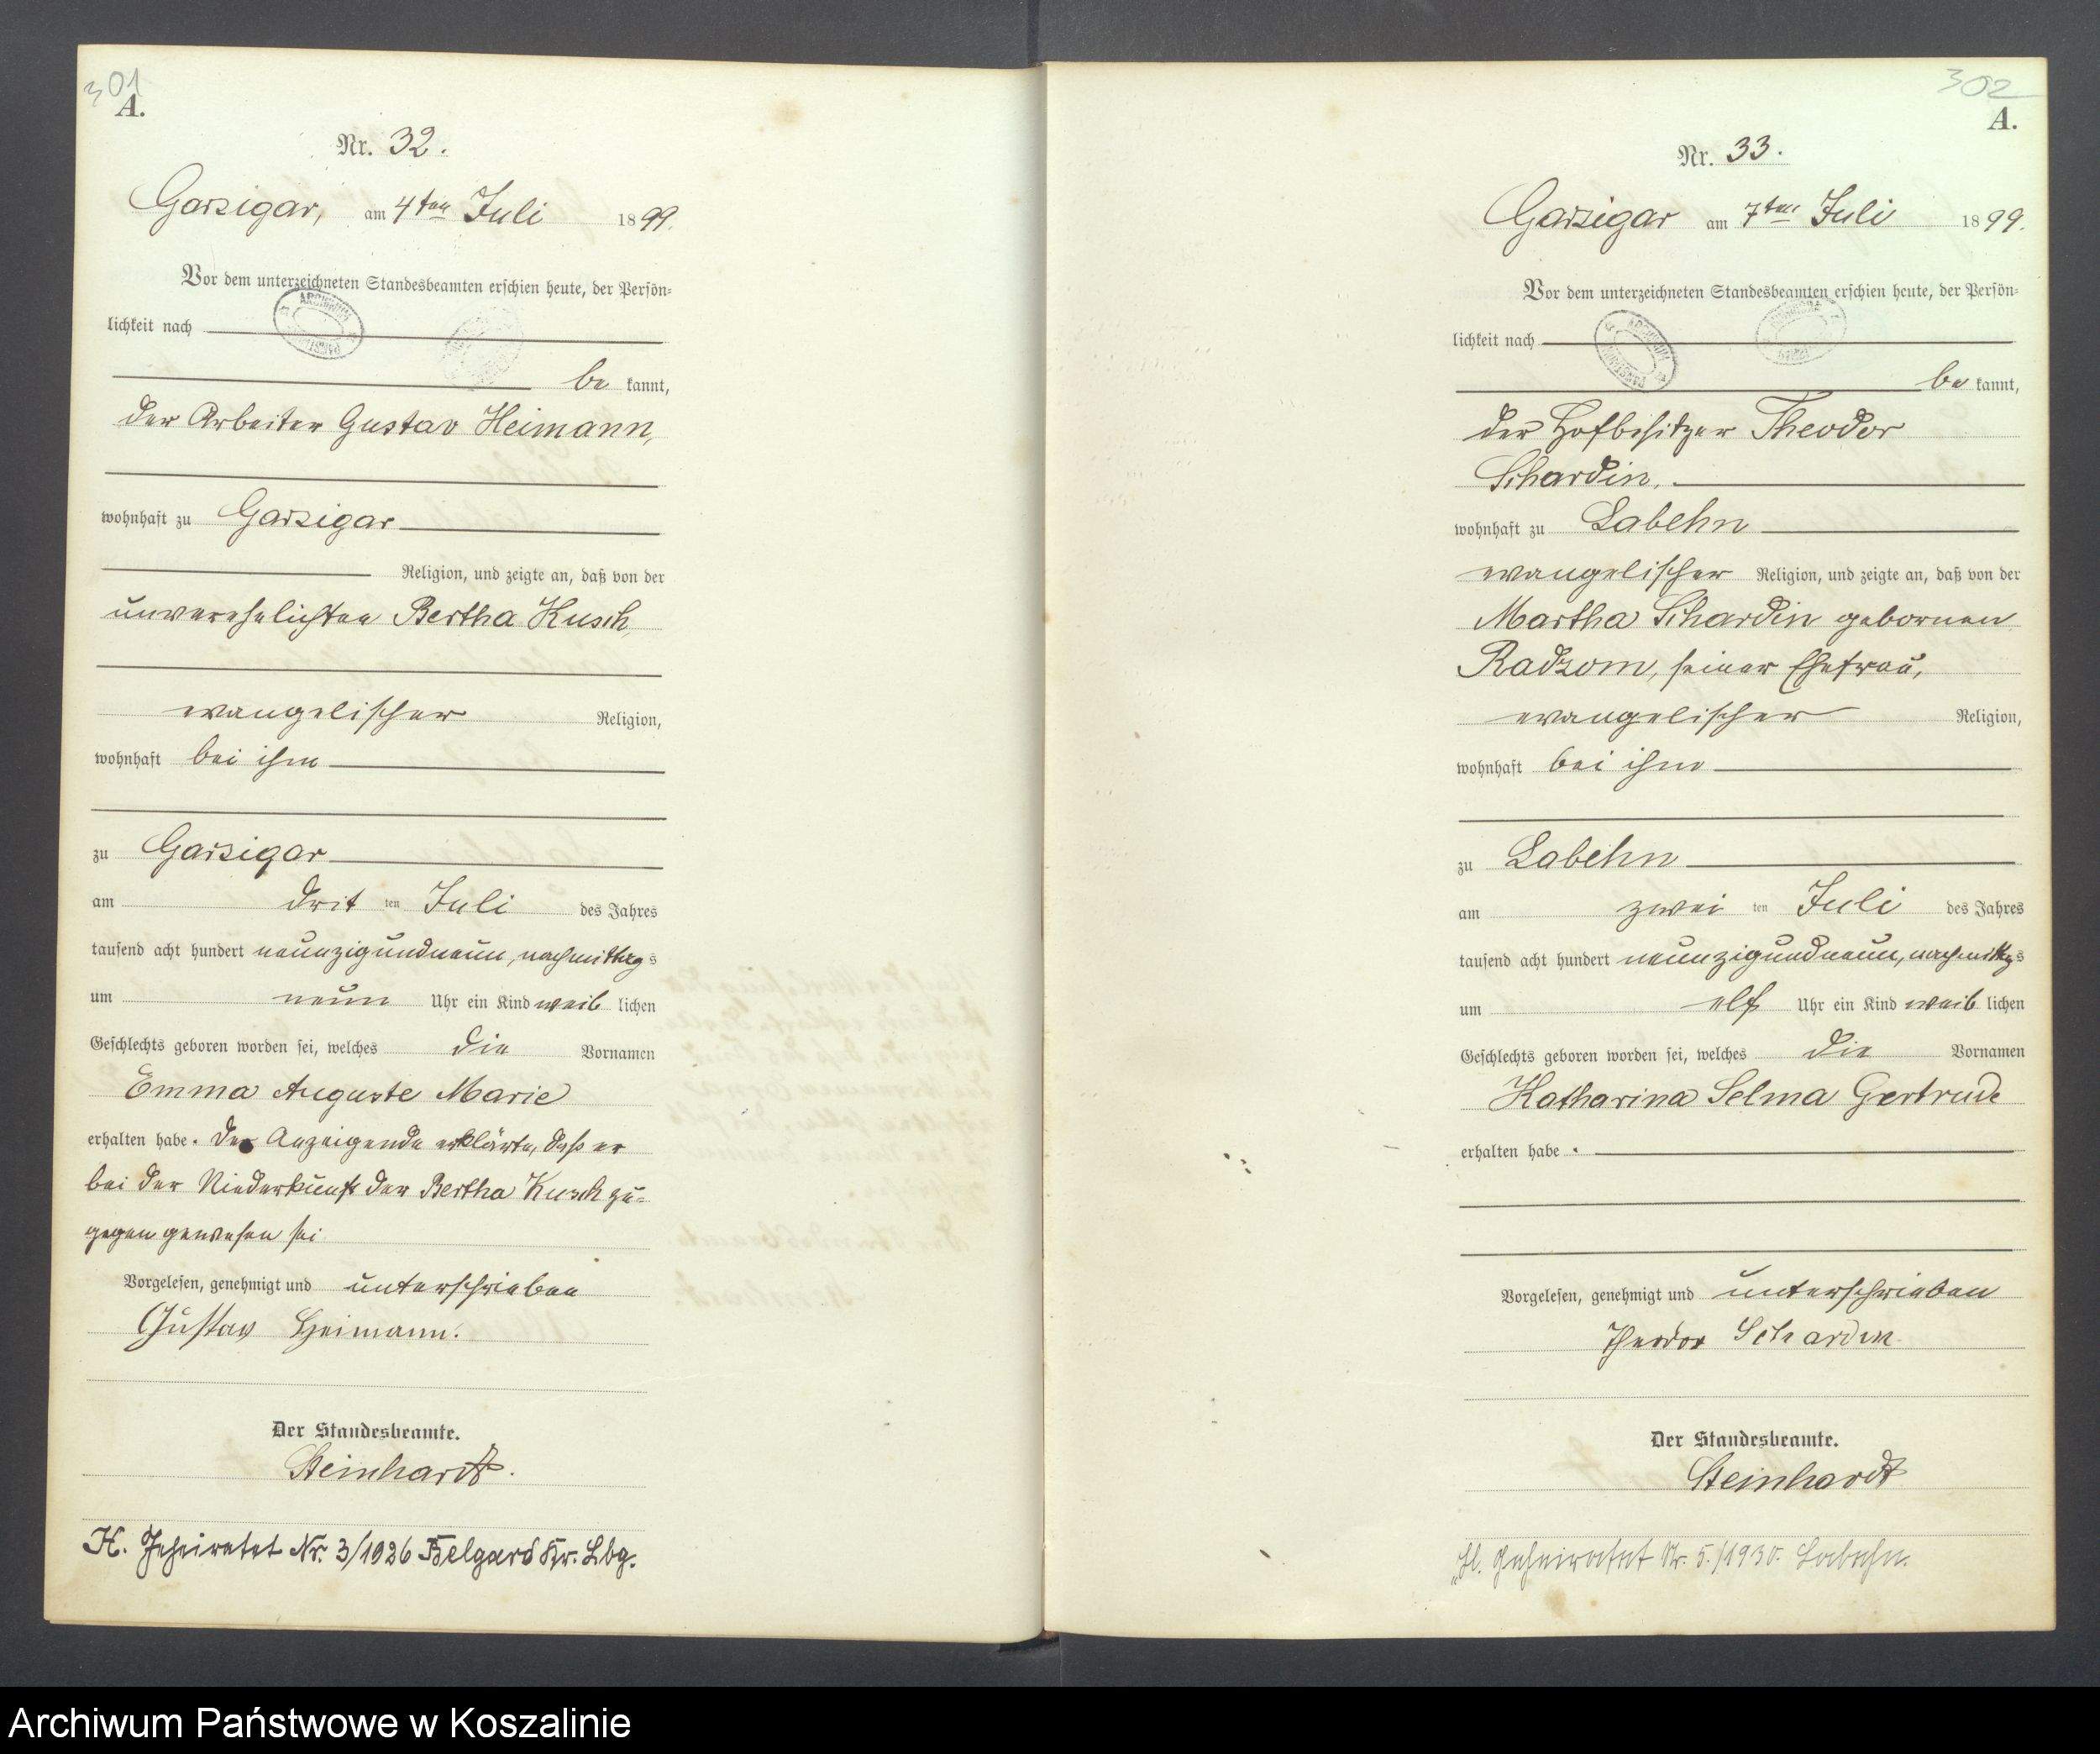 301
A.
Nr. 32.
Garzigar, am 4ten Juli 1899.
Vor dem unterzeichneten Standesbeamten erschien heute, der Persön=
lichkeit nach
be kannt,
der Arbeiter Gustav Heimann,
wohnhaft zu Garzigar
Religion, und zeigte an, daß von der
unverehelichten Bertha Kusch,
evangelischer Religion,
wohnhaft bei ihm
zu Garzigar
am drit ten Juli des Jahres
tausend acht hundert neunzigundneun, nachmittags
um neun Uhr ein Kind weib lichen
Geschlechts geboren worden sei, welches die Vornamen
Emma Auguste Marie
erhalten habe. Der Anzeigende erklärte, daß er
bei der Niederkunft der Bertha Kusch zu=
gegen gewesen sei
Vorgelesen, genehmigt und unterschrieben
Gustav Heimann.
Der Standesbeamte.
Steinhardt.
H. Geheiratet Nr. 3/1926 Belgard Kr. Lbg.
302
A.
Nr. 33.
Garzigar am 7ten Juli 1899.
Vor dem unterzeichneten Standesbeamten erschien heute, der Persön=
lichkeit nach
be kannt,
der Hofbesitzer Theodor
Schardin,
wohnhaft zu Labehn
evangelischer Religion, und zeigte an, daß von der
Martha Schardin gebornen
Radzom, seiner Ehefrau,
evangelischer Religion,
wohnhaft bei ihm
zu Labehn
am zwei ten Juli des Jahres
tausend acht hundert neunzigundneun, nachmittags
um elf Uhr ein Kind weib lichen
Geschlechts geboren worden sei, welches die Vornamen
Katharina Selma Gertrude
erhalten habe.
Vorgelesen, genehmigt und unterschrieben
Theodor Schardin
Der Standesbeamte.
Steinhardt
H. Geheiratet Nr. 5./1930. Labehn.
Archiwum Państwowe w Koszalinie